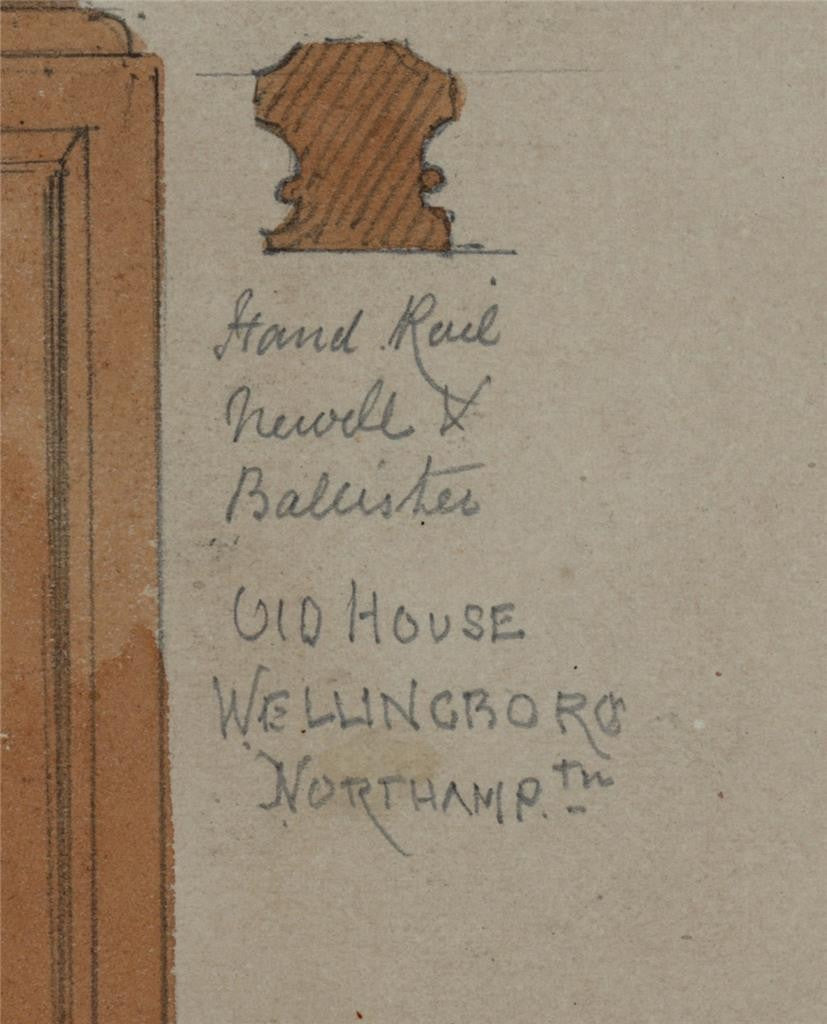 Hand Rail
Newell &
Ballister
OlD HOUSE
WELLINGBORO
NORTHAMP.tn